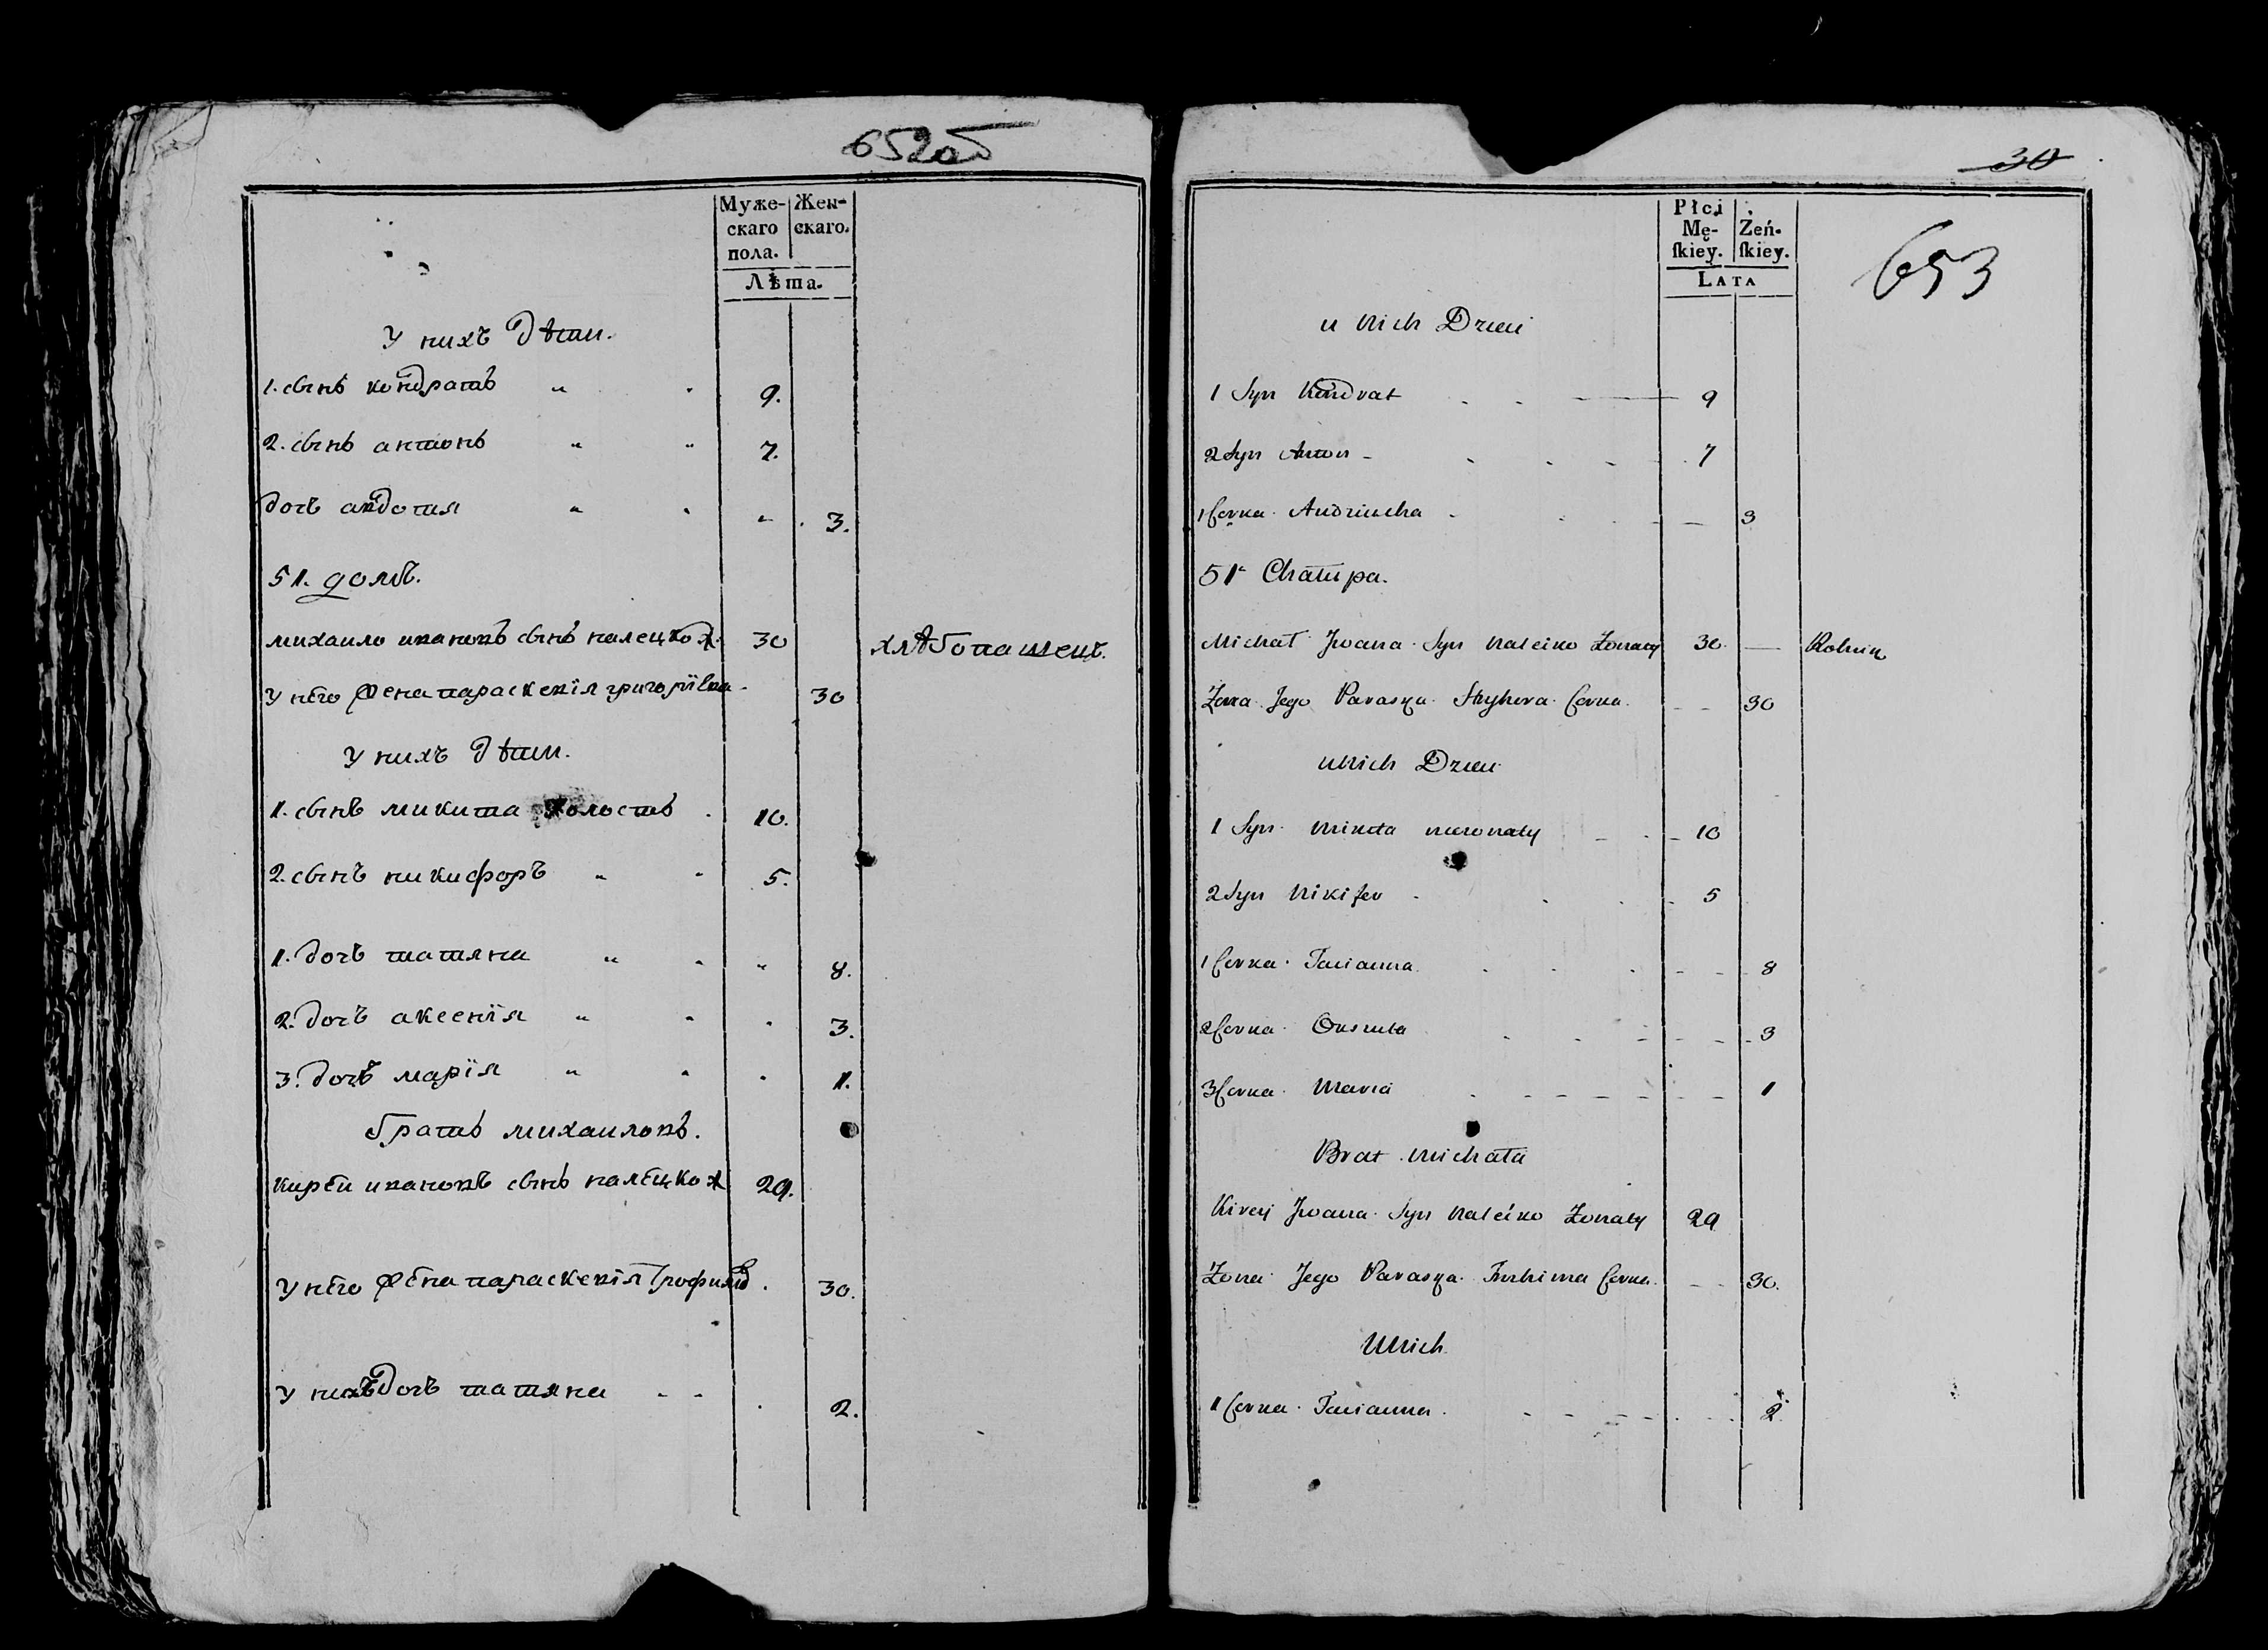 652об
Муже-
скаго
пола.
Жен-
скаго.
Лѣта.
У нихъ дѣти.
1. сынъ кондратъ " " 9.
2. сынъ антонъ " " 7.
дочь авдотия " " " 3.
51. домъ.
михаило ивановъ сынъ налецко ж. 30 хлѣбопашецъ.
У него жена параскевiя григорiивна 30
У нихъ дѣти.
1. сынъ микита холостъ 10.
2. сынъ никифоръ " " 5.
1. дочь татяна " " " 8.
2. дочь аксенiя " " " 3.
3. дочь марiя " " " 1.
братъ михаиловъ.
кирей ивановъ сынъ налецко ж 29.
У него жена параскевiя 30.
У нихъ дочь татяна 2.
30
653
Płci
Mę-
ſkiey.
Żeń-
ſkiey.
LATA
u Nich Dzieci
1 Syn Kondrat 9
2 Syn Anton 7
1 Corka 3
51 Chałupa.
Michał Jwana Syn Naleiko Żonaty 30 — Rolnik
Żona Jego Paraska Corka 30
u Nich Dzieci
1 Syn Mikita nieżonaty 10
2 Syn Nikifer 5
1 Corka Tacianna 8
2 Corka 3
3 Corka Maria 1
Brat Michała
Kirey Jwana Syn Naleiko Żonaty 29
Żona Jego Paraska Corka 30.
U Nich
1 Corka Tacianna 2